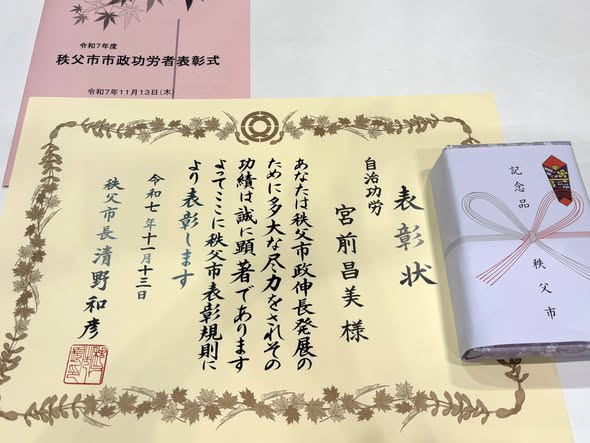 令和7年度
秩父市市政功労者表彰式
令和7年11月13日(木)
表彰状
自治功労
宮前昌美様
あなたは秩父市政伸長発展の
ために多大な尽力をされその
功績は誠に顕著であります
よってここに秩父市表彰規則に
より表彰します
令和七年十一月十三日
秩父市長清野和彦
記念品
秩父市